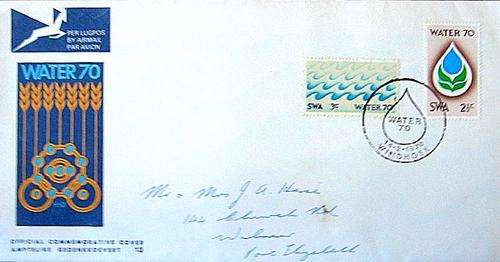 PER LUGPOS
BY AIRMAIL
PAR AVION
WATER 70
WATER 70
SWA 3c WATER 70
SWA 2½c
WATER
70
WINDHOEK
Mr & Mrs J A
Church Rd
Walmer
Port Elizabeth
OFFICIAL COMMEMORATIVE COVER
AMPTELIKE GEDENKKOEVERT 10